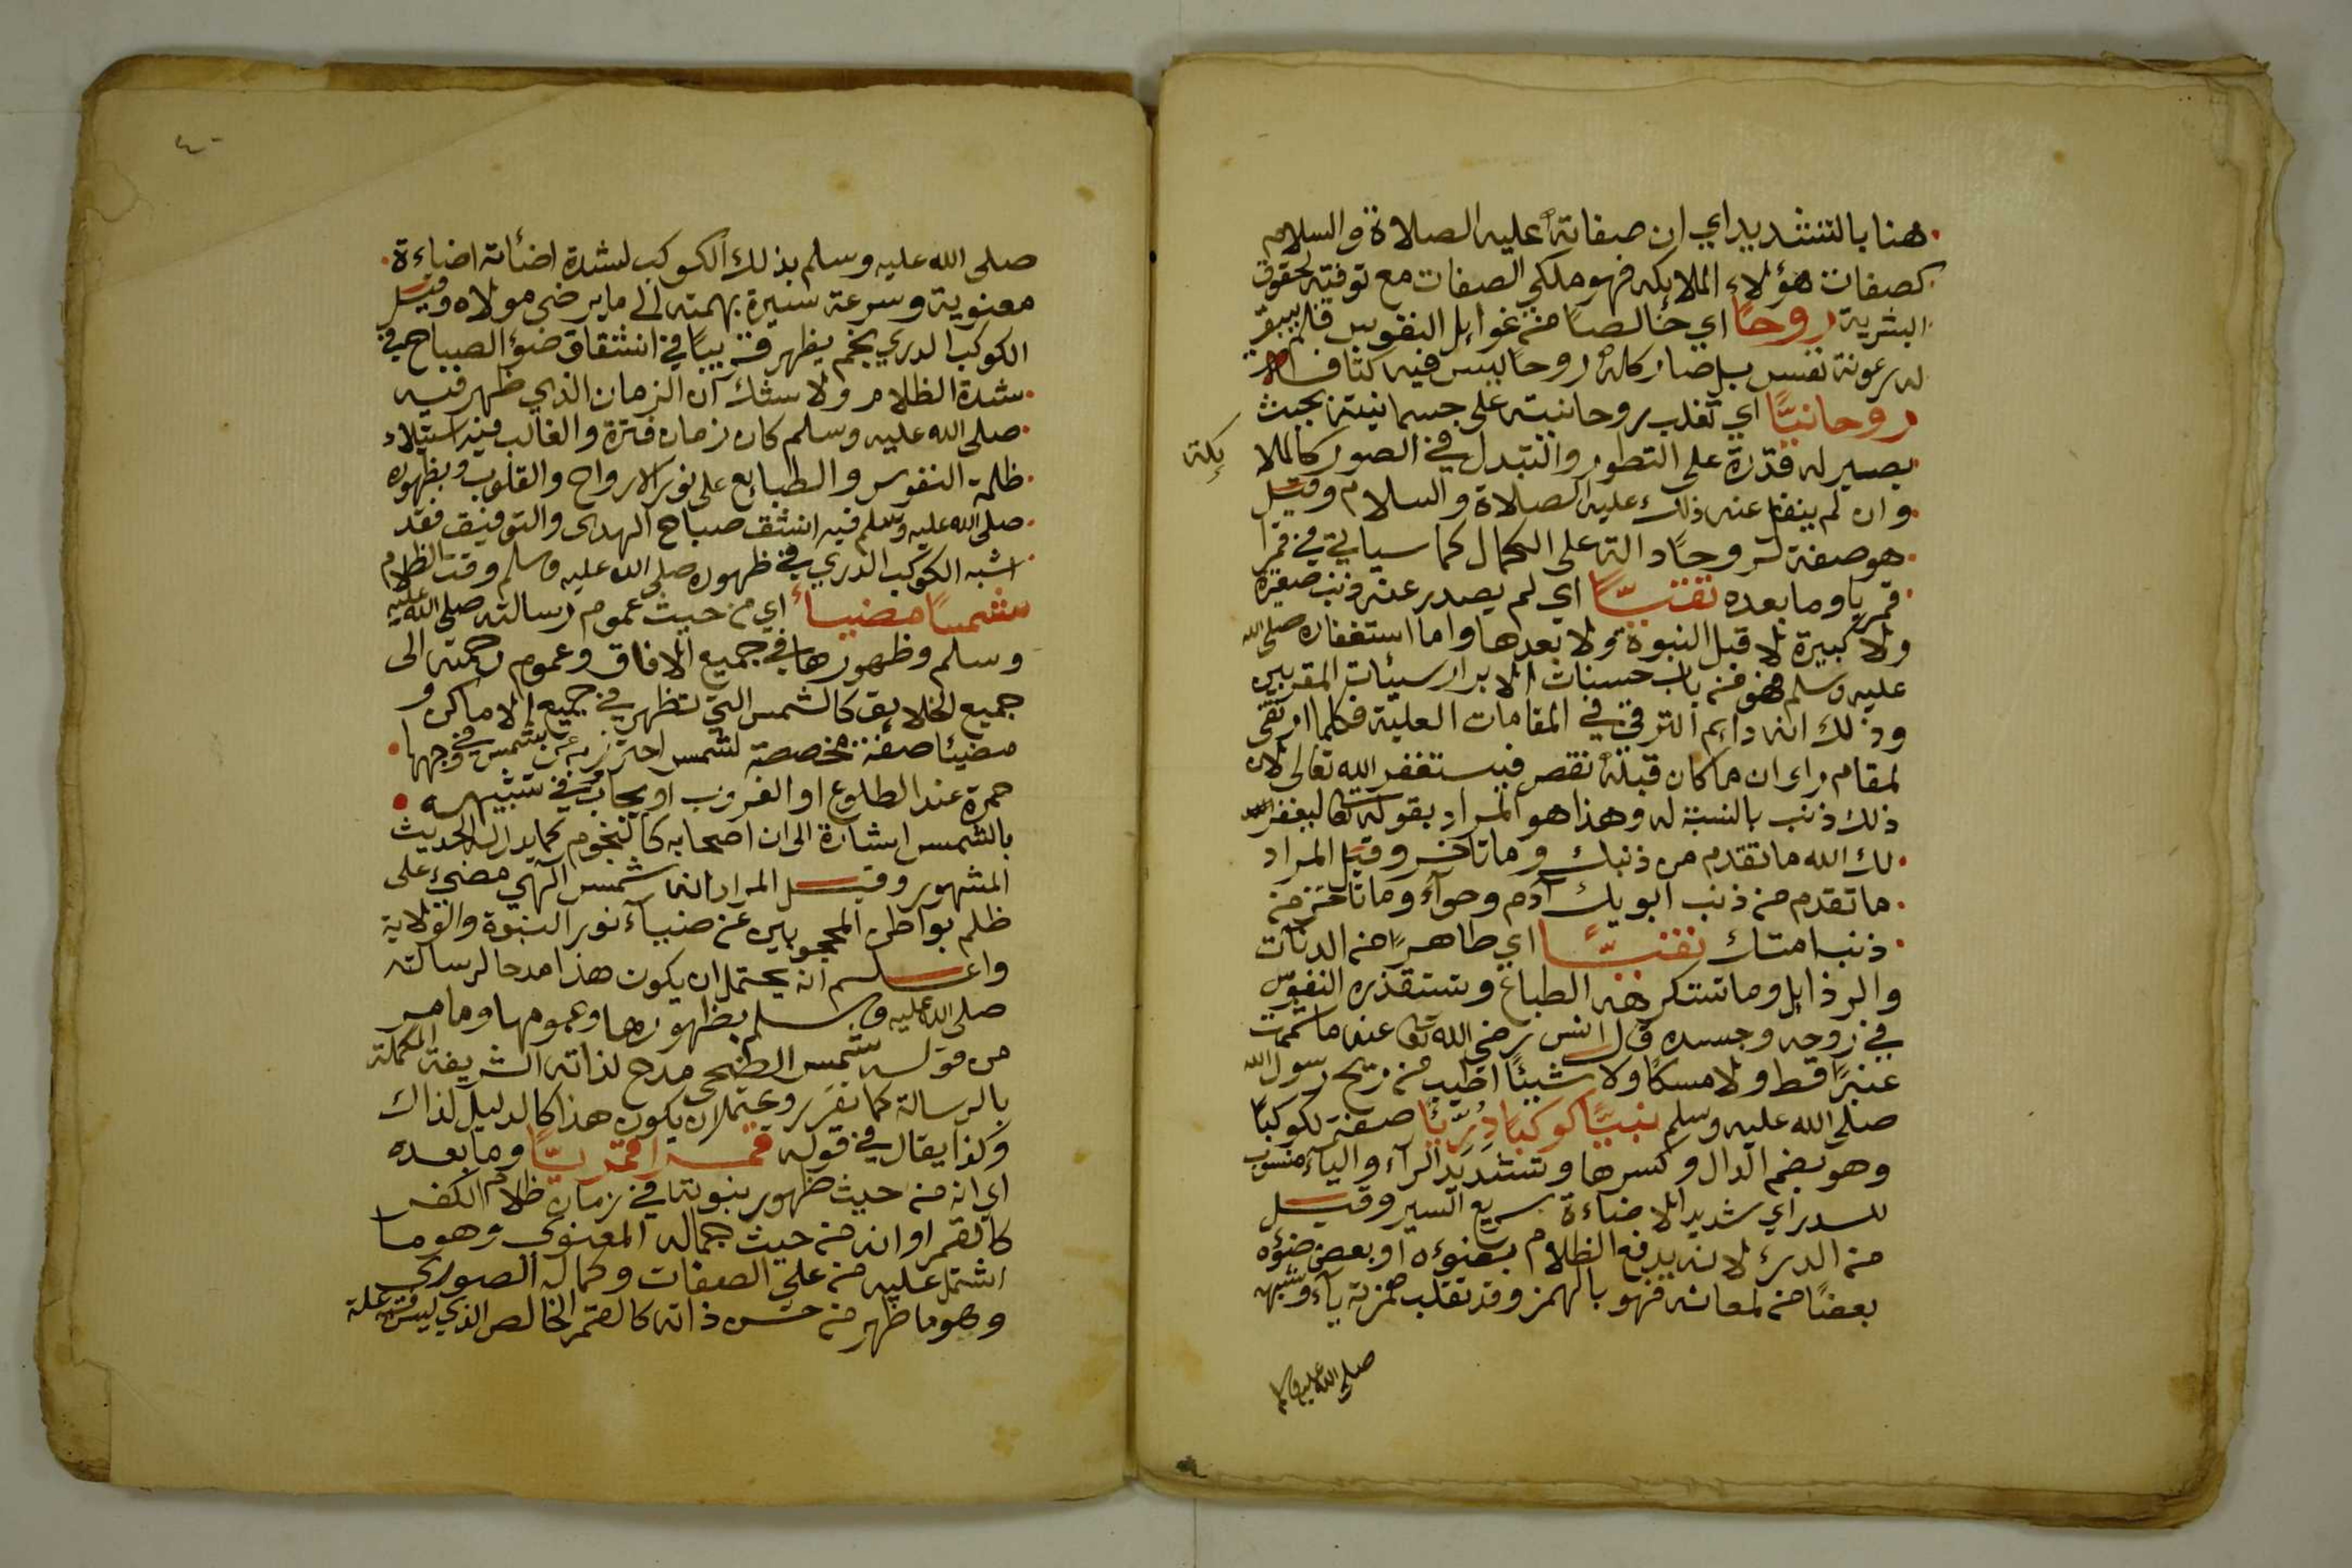 هنا بالتشديد اي ان صفاته عليه الصلاة والسلام
كصفات هؤلاء الملايكه فهو ملكي الصفات مع توفته لحقوق
البشرية روحًا اي خالصا من غوايل النفوس فلم يبق
له رعونة نفس بل صار كله روحا ليس فيه كثافة
روحانيًّا اي تغلب روحانيته على جسمانيته بحيث
يصير له قدرة على التطور والتبدل في الصور كالملا
يكة
وان لم ينقل عنه ذلك عليه الصلاة والسلام وقيل
هو صفة لروحًا دالة على الكمال كما سياتي في قمرا
قمريا وما بعده تقيًّا اي لم يصدر عنه ذنب صغيرة
ولا كبيرة لا قبل النبوة ولا بعدها واما استغفاره صلى الله
عليه وسلم فهو من باب حسنات الابرار سيئات المقربين
وذلك انه دايم الترقي في المقامات العلية فكلما ارتقى
لمقام راى ان ما كان قبله نقص فيستغفر الله تعالى لان
ذلك ذنب بالنسبة له وهذا هو المراد بقوله تعا ليغفر
لك الله ما تقدم من ذنبك وما تاخر وقيل المراد
ما تقدم من ذنب ابويك آدم وحوآء وما تاخر من
ذنب امتك نقيًّا اي طاهرًا من الدنآت
والرذايل وما تستكرهه الطباع وتستقذره النفوس
في روحه وجسده قال انس رضي الله تعا عنه ما شممت
عنبرًا قط ولا مسكًا ولا شيئًا اطيب من ريح رسول الله
صلى الله عليه وسلم نبيًّا كوكبًا دُرِّيًّا صفة لكوكبًا
وهو بضم الدال وكسرها وتشديد الرآء واليآء منسوب
للدر اي شديد الاضاءة سريع السير وقيل
من الدرئ لانه يدفع الظلام بضوءه او بعض ضوءه
بعضًا من لمعانه فهو بالهمز وقد تقلب همزته يآء وشبه
صلى الله عليه وسلم
٤٠
صلى الله عليه وسلم بذلك الكوكب لشدة اضائة اضاءة
معنوية وسرعة سيره بهمته الى ما يرضى مولاه وقيل
الكوكب الدري نجم يظهر قريبًا في انشقاق ضوء الصباح في
شدة الظلام ولا شك ان الزمان الذي ظهر فيه
صلى الله عليه وسلم كان زمان فترة والغالب فيه استيلاء
ظلمة النفوس والطبايع على نور الارواح والقلوب وبظهوره
صلى الله عليه وسلم فيه انشق صباح الهدى والتوفيق فقد
اشبه الكوكب الدري في ظهوره صلى الله عليه وسلم وقت الظلام
شمسًا مضيئا اي من حيث عموم رسالته صلى الله عليه
وسلم وظهورها في جميع الافاق وعموم رحمته الى
جميع الخلايق كالشمس التي تظهر في جميع الاماكن و
مضيئا صفة مخصصة لشمس احترز به عن شمس في وجهها
حمرة عند الطلوع او الغروب او سحاب وفي تشبيهه
بالشمس اشارة الى ان اصحابه كالنجوم كما يدل له الحديث
المشهور وقيل المراد انه شمس آلهي مضيء على
ظلم بواطن المحجوبين عن ضيآء نور النبوة والولاية
واعلم انه يحتمل ان يكون هذا مدحا لرسالته
صلى الله عليه وسلم بظهورها وعمومها وما مر
من قوله شمس الضحى مدح لذاته الشريفة المكملة
بالرسالة كما تقرر ويحتمل ان يكون هذا كالدليل لذاك
وكذا يقال في قوله قمرا قمريًّا وما بعده
اي انه من حيث ظهور نبوته في زمان ظلام الكفر
كالقمر او انه من حيث جماله المعنوي وهو ما
اشتمل عليه من على الصفات وكماله الصوري
وهو ما ظهر من حسن ذاته كالقمر الخالص الذي ليس فيه علة